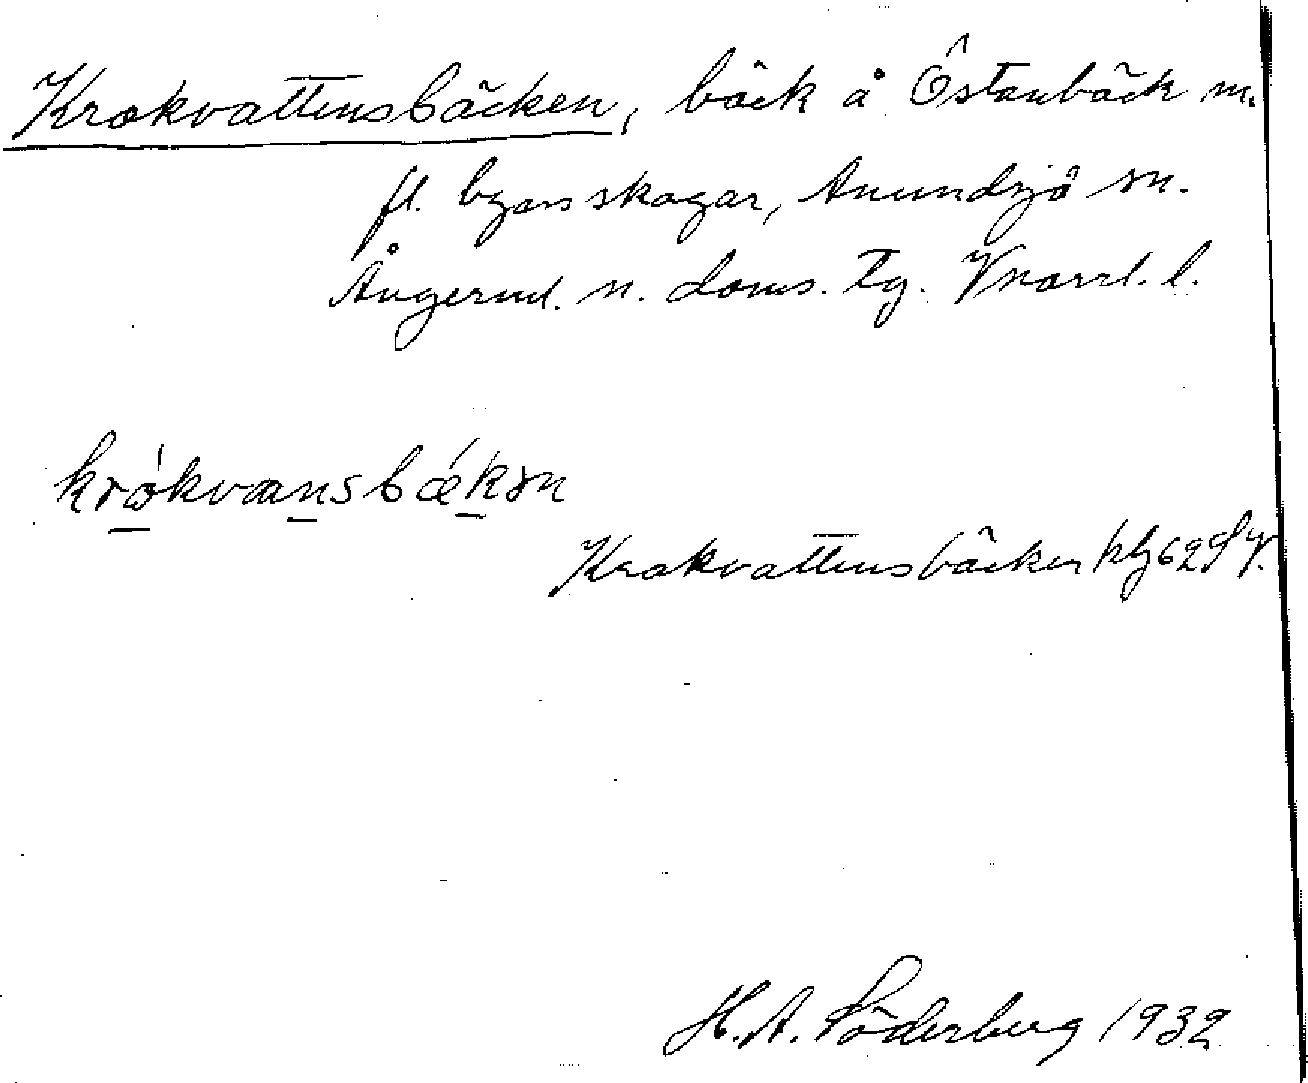 Krokvattensbäcken, bäck å Östanbäck m.
fl. byars skogar, Anundsjö sn.
Ångerml. n. doms. tg. Vnorrl. l.
krókvansbǽkən
Krokvattensbäcken blz 62 SV.
H. A. Söderberg 1932